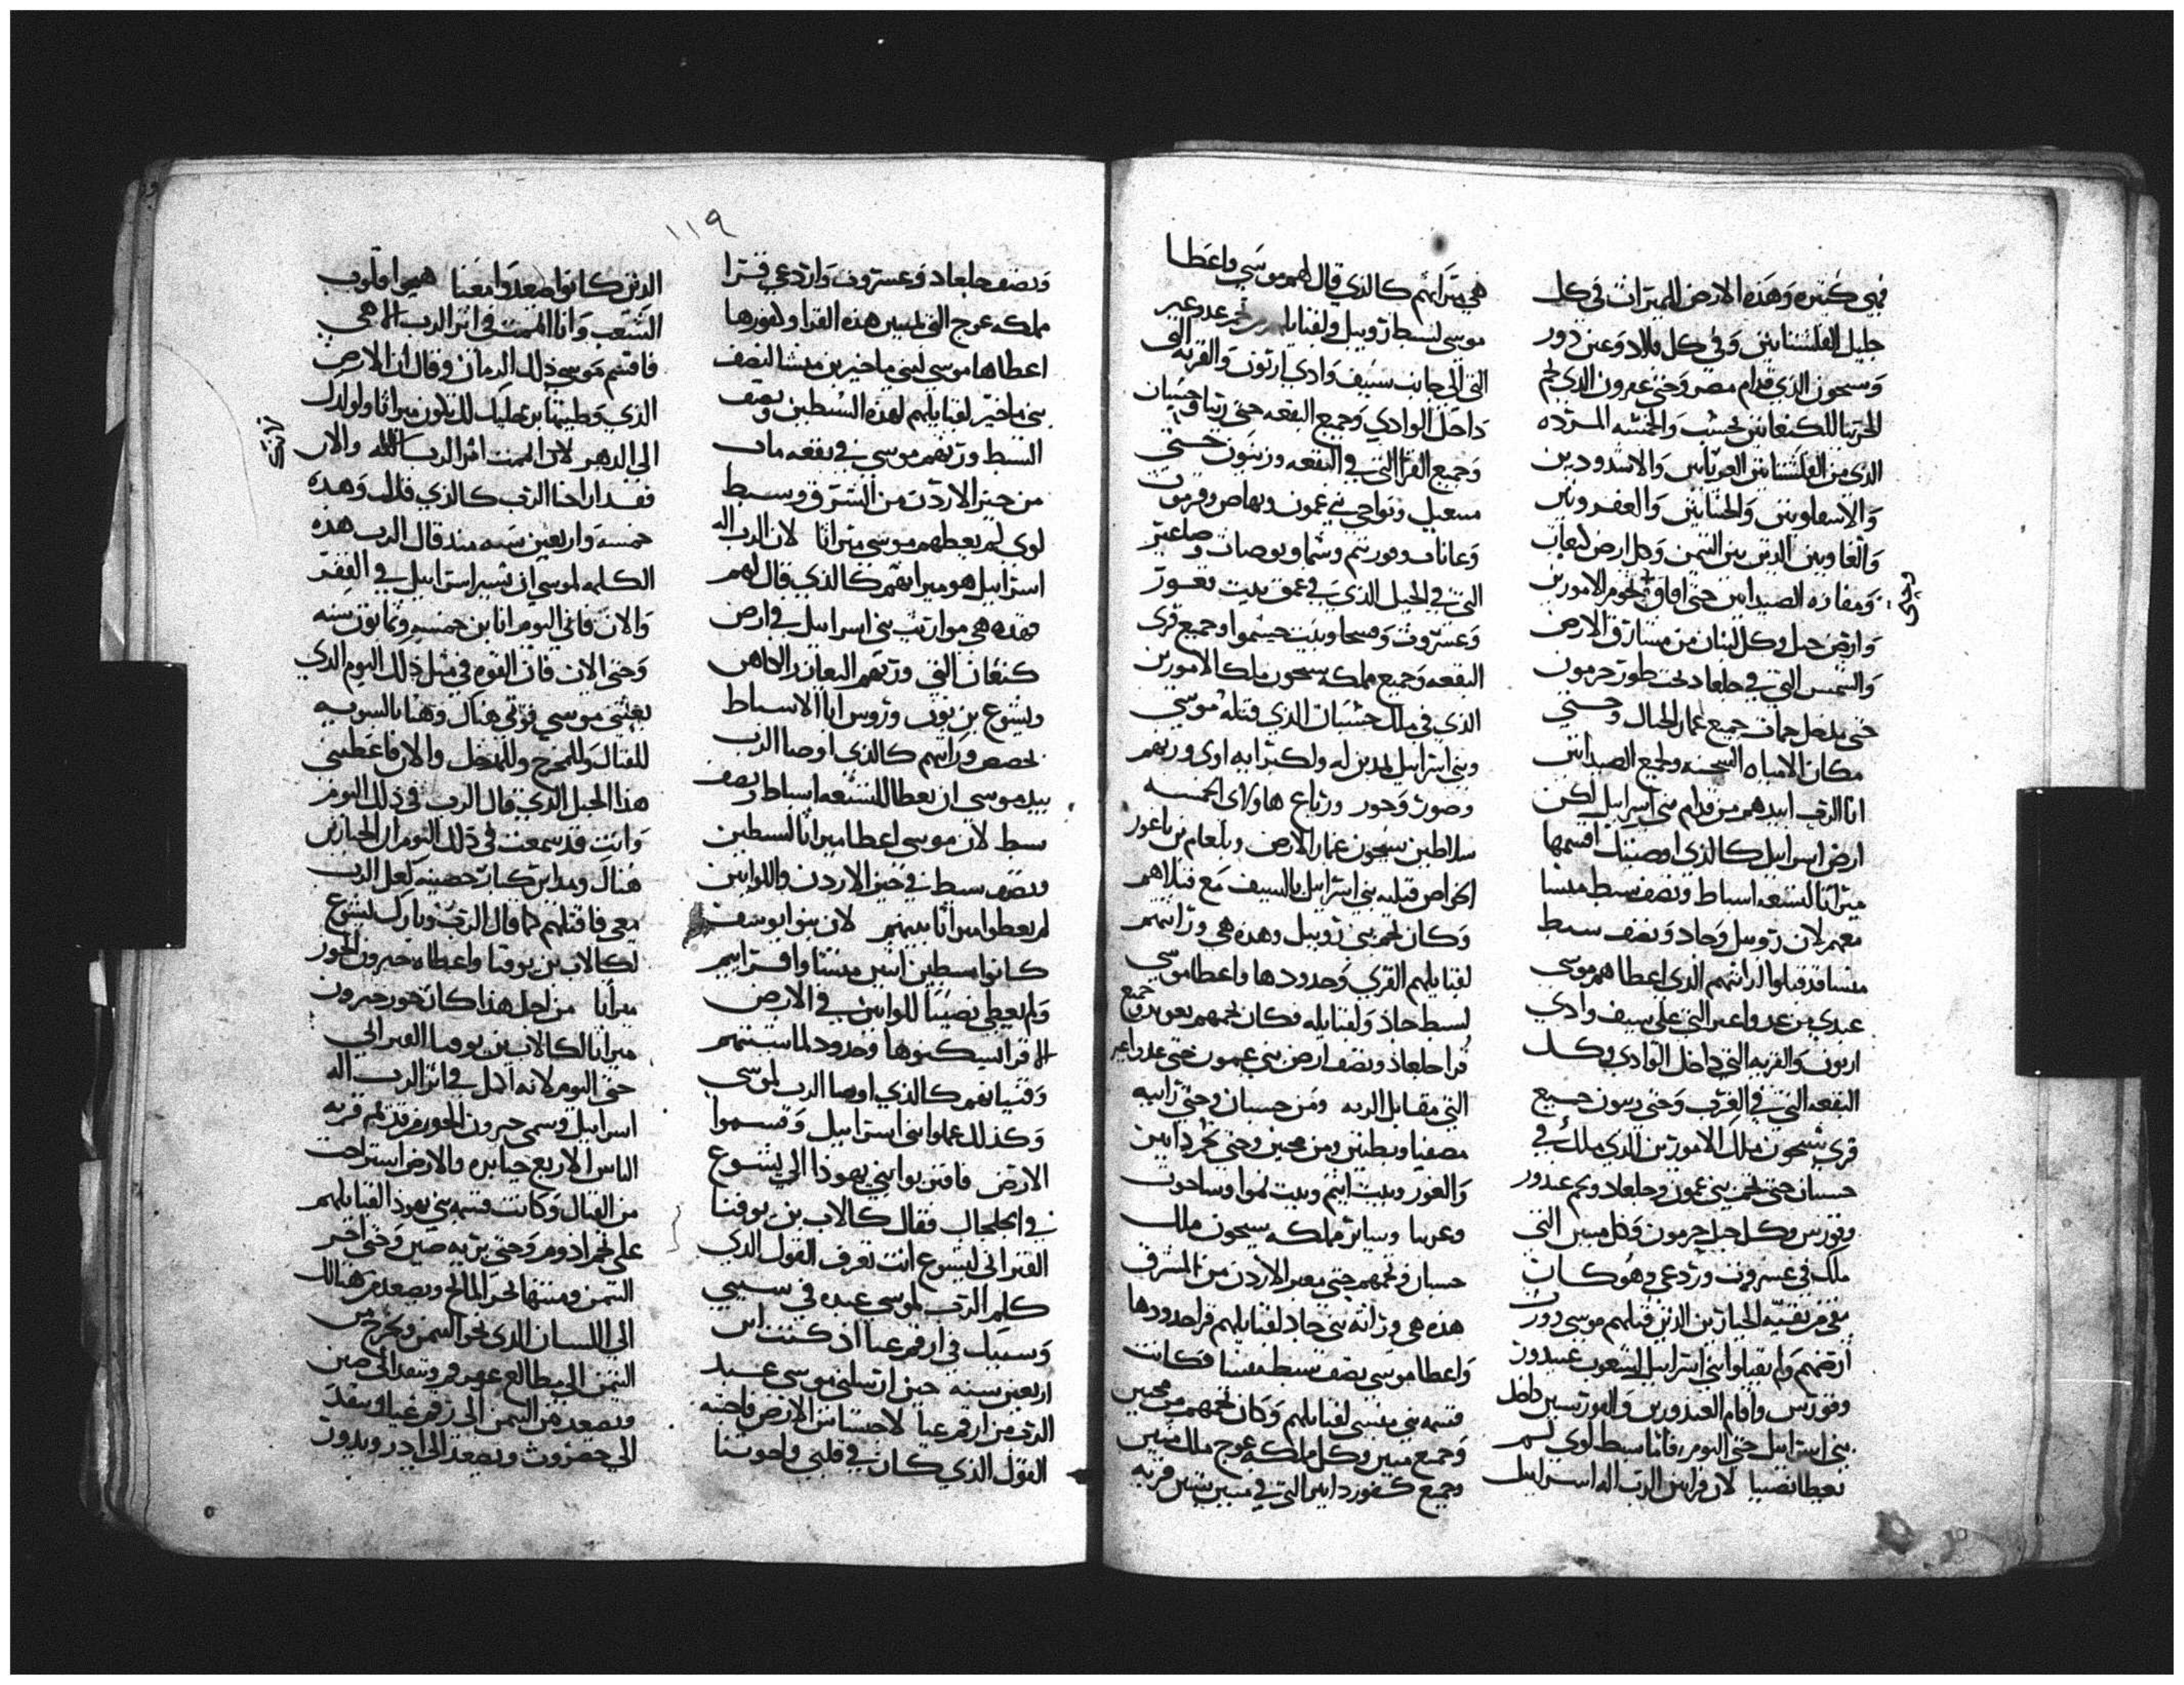 فهي كثيره وهذه الارض الميراث في كل
جليل الفلشتانيين وفي كل بلاد وعين دور
وسيحون الذي قدام مصر وحتى عمرون الذي لجم
الجرتيا للكنعانيين بحسب والخمسه المرده
الذي من الفلشتانيين العزتانيين والاشدودين
والاسقلونيين والجتانيين والعفرونيين
والعاويين الذين بين التيمن وكل ارض كنعان
ومغاره الصيدانين حتى افاق تخوم الامورين
وارض جبل وكل لبنان من مشارق الارض
والشمس التي في جلعاد تحت طور حرمون
حتى مدخل حمات جميع عمار الجبال وحتى
مكان الامياه السخنه ولجميع الصيدانين
انا الرب ابيدهم من قدام بني اسراييل لكن
ارض اسراييل كالذي اوصيتك اقسمها
ميراثا لتسعه اسباط ونصف سبط منشا
معهم لان روبيل وجاد ونصف سبط
منشا قد قبلوا وراثتهم الذي اعطاهم موسى
عبدي من عدواعير التي على سيف وادي
ارنون والقريه التي داخل الوادي وكل
البقعه التي في الغرب وحتى ريبون جميع
قرى سيحون ملك الامورين الذي ملك في
حسبان حتى تخم بني عمون وجلعاد وتخم عندور
وقورس وكل جبل حرمون وكل متين التي
ملك في عسروت وردعي وهو كان
بقي من بقيه الجبارين الذين قتلهم موسى دور
ارضهم ولم يقبلوا بني اسراييل الشعوب عيندور
وقورس واقام العندورين والقورسين داخل
بني اسراييل حتى اليوم فاما سبط لوي لم
يعطا نصيبا لان قرابين الرب اله اسراييل
هي ميراثهم كالذي قال لهم موسى واعطا
موسى لسبط روبيل ولقبايلهم من تخم عدوعير
التي الى جانب سيف وادي ارنون والقريه التي
داخل الوادي وجميع البقعه حتى ربتا وحسبان
وجميع القرا التي في البقعه وزيبون حتى
وعسروت وفسحا وبيت حيشموا وجميع قرى
البقعه وجميع مملكه سيحون ملك الامورين
الذي في ملك حسبان الذي قتله موسى
وبني اسراييل لمدين له ولكبرايه اوى وربهم
وصور وحور ورباع هاولاى الخمسه
سلاطين سيحون عمار الارض وبلعام بن باعور
الخراص قتله بني اسراييل بالسيف مع قتلاهم
وكان تخم بني روبيل وهذه هي وراثتهم
لقبايلهم القرى وحدودها واعطا موسى
لسبط جاد ولقبايله فكان تخمهم يعوير وجميع
قرا جلعاد ونصف ارض بني عمون حتى عدواعير
التي مقابل الربه ومن حسبان وحتى رابيه
مصفيا وبطنين ومن محنين وحتى تخم دابين
والغور وبيت ايتم وبيت نموا وساحوت
وعربيا وساير مملكه سيحون ملك
حسبان وتخمهم حتى معبر الاردن من المشرق
هذه هي وراثه بني جاد لقبايلهم قراحدودها
واعطا موسى نصف سبط منشا فكانت
قسمه بني منسى لقبايلهم وكان تخمهم من محنين
وجميع متين وكل مملكه عوج ملك متين
وجميع كفور دايم التي في متين ستين قريه
١١٩
ونصف جلعاد وعستروت واردعي قرا
مملكه عوج التي لمتين هذه القرا وكفورها
اعطاها موسى لبني ماخير بن منشا لنصف
بني ماخير لقبايلهم لهذه السبطين ونصف
السبط ورثهم موسى في بقعه ماب
من حيز الاردن من الشرق وسبط
لوي لم يعطهم موسى ميراثا لان الرب اله
اسراييل هو ميراثهم كالذي قال لهم
فهذه هي مواريث بني اسراييل في ارض
كنعان التي ورثهم اليعازر الكاهن
ويشوع بن نون وروس ابا الاسباط
بحصص وراثهم كالذي اوصا الرب
بيد موسى ان يعطا للتسعه اسباط ونصف
سبط لان موسى اعطا ميراثا لسبطين
ونصف سبط في حيز الاردن واللوانين
لم يعطوا ميراثا بينهم لان بنوا يوسف
كانوا سبطين اثنين منشا وافرايم
ولم يعطى نصيبا للواين في الارض
الا قرا يسكنوها وحدود لماشيتهم
وقنيانهم كالذي اوصا الرب لموسى
وكذلك عملوا بني اسراييل وقسموا
الارض فاقتربوا بني يهوذا الى يشوع
في الجلجال فقال كالاب بن يوفنا
القنزاني ليشوع انت تعرف القول الذي
كلم الرب لموسى عبده في سببي
وسببك في ارقم عيا اذ كنت ابن
اربعين سنه حين ارسلني موسى عبد
الرب من ارقم عيا لاجتساس الارض فاجبته
القول الذي كان في قلبي واخوتنا
الذين كانوا صعدوا معنا هميوا قلوب
الشعب وانا اتممت في اثر الرب الاهي
فاقسم موسى ذلك الزمان وقال ان الارض
الذي وطيتها برجليك لك تكون ميراثا ولولدك
الى الدهر لان اتممت اثر الرب الله والان
فقد اراحنا الرب كالذي قال وهذه
خمسه واربعين سنه منذ قال الرب هذه
الكلمه لموسى ان تسير اسراييل في القفر
والان فاني اليوم انا بن خمسه وثمانون سنه
وحتى الان فان القوه في مثل ذلك اليوم الذي
بعثني موسى قوتي هناك وهنا بالسويه
للقتال وللمخرج وللمدخل والان فاعطيني
هذا الجبل الذي قال الرب في ذلك اليوم
وانت قد سمعت في ذلك اليوم ان الجبارين
هناك ومداين كبار حصينه لعل الرب
معي فاقتلهم كما قال الرب وبارك يشوع
لكالاب بن يوفنا واعطاه حبرون الحور
ميراثا من اجل هذا كان حور حبرون
ميراثا لكالاب بن يوفنا القنزاني
حتى اليوم لانه اكمل في اثر الرب اله
اسراييل وسمى حبرون الحور من قديم قريه
الناس الاربع جبابره والارض استراحت
من القتال وكانت قسمه بني يهوذا لقبايلهم
على تخم ادوم وحتى بريه صين وحتى اخر
التيمن ومنتها البحر المالح ويصعد من هنالك
الى اللسان الذي نحو التيمن ويخرج من
التيمن الى مطالع عقرقم وينفد الى صين
ويصعد من التيمن الى رقم عيا وينفد
الى حصروت ويصعد الى ادر ويدور